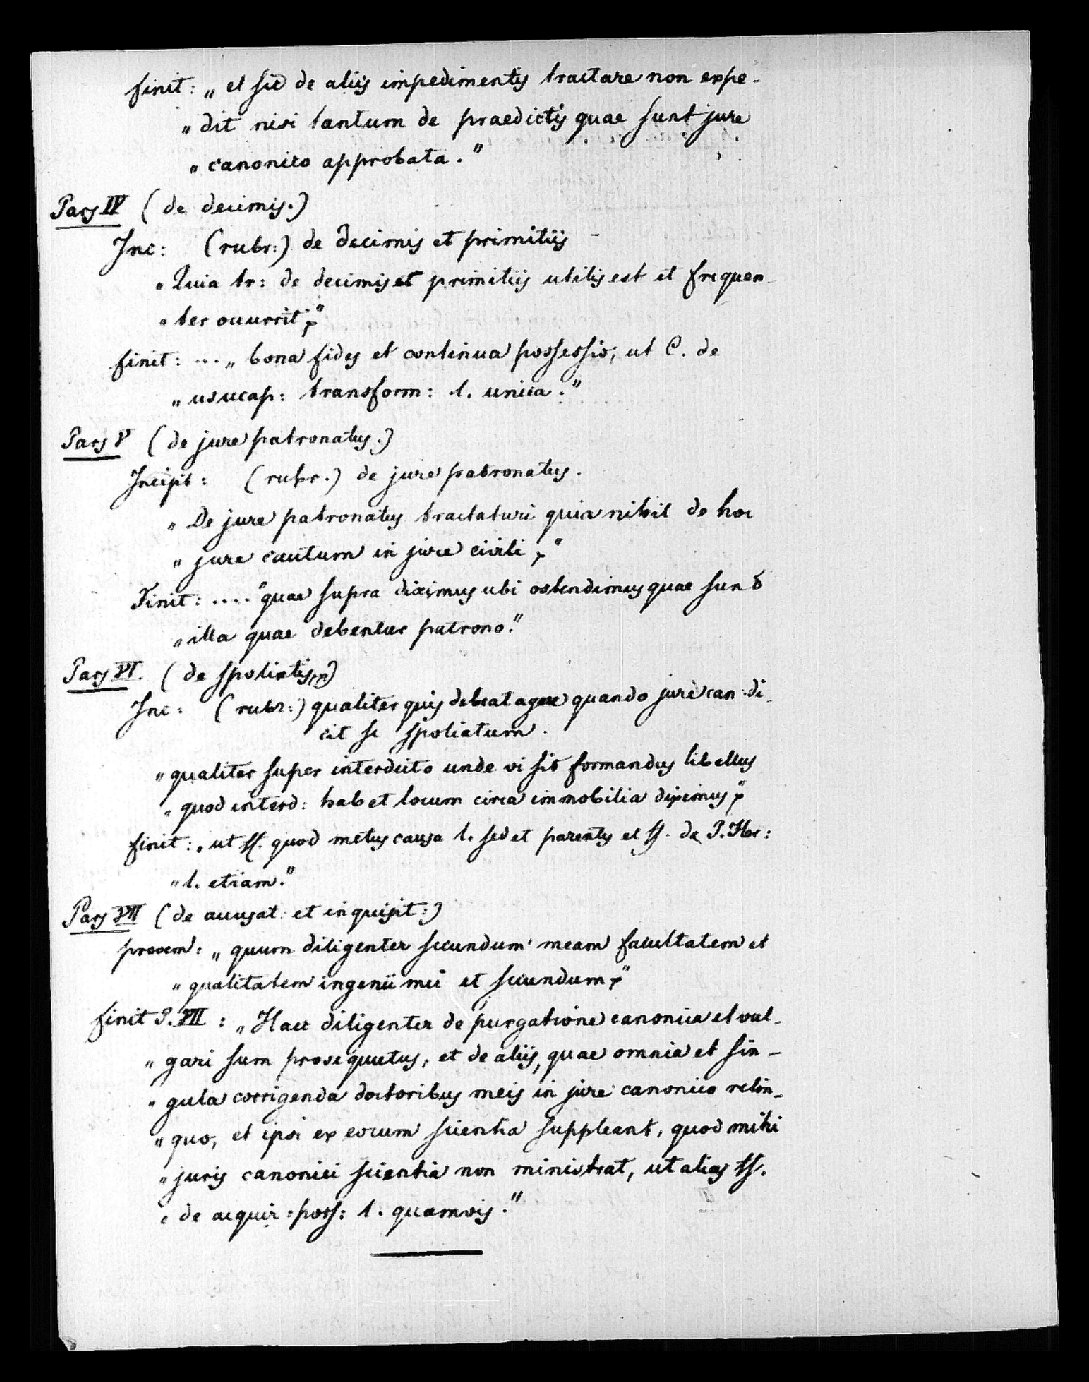 finit: „ et sic de aliis impedimentis tractare non expe-
„ dit nisi tantum de praedictis quae sunt jure
„ canonico approbata."
Pars IV (de decimis.)
Inc: (rubr:) de decimis et primitiis
„ Quia tr: de decimis et primitiis utilis est et frequen-
„ ter occurrit;"
finit: ... „ bona fides et continua possessio, ut C. de
„ usucap: transform: l. unica."
Pars V (de jure patronatus.)
Incipit: (rubr.) de jure patronatus.
„ De jure patronatus tractaturi quia nihil de hoc
„ jure cautum in jure civili"
Finit: .... "quae supra diximus ubi ostendimus quae sunt
„ illa quae debentur patrono."
Pars VI. (de spoliatis)
Inc: (rubr:) qualiter quis debeat agere quando jure can: di-
cit se spoliatum.
„ qualiter super interdicto unde vi sit formandus libellus
„ quod interd: habet locum circa immobilia diximus"
finit: „ ut ff. quod metus causa l. sed et partus et ff. de P. Her:
„ l. etiam."
Pars VII (de accusat: et inquisit:)
prooem: „ quum diligenter secundum meam facultatem et
„ qualitatem ingenii mei et secundum"
finit P. VII: „ Haec diligenter de purgatione canonica et vul-
„ gari sum prosequutus, et de aliis, quae omnia et sin-
„ gula corrigenda doctoribus meis in jure canonico relin-
„ quo, et ipsi ex eorum scientia suppleant, quod mihi
„ juris canonici scientia non ministrat, ut alias ff.
„ de acquir: poss: l. quamvis."